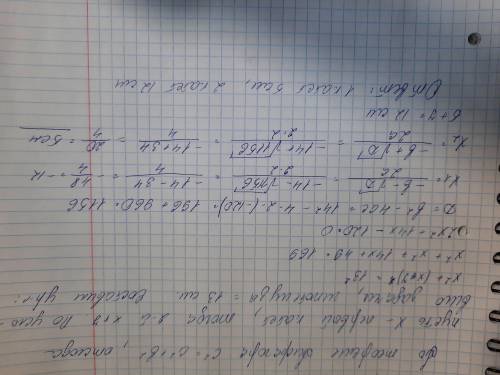 По теореме Пифагора c² = a² + b², отсюда
пусть x - первый катет, тогда 2й x+7 По усло-
вию задачи, гипотенуза = 13 см. Составим ур-:
x² + (x+7)² = 13²
x² + x² + 14x + 49 = 169
2x² - 14x - 120 = 0
D = b² - 4ac = 14² - 4·2·(-120) = 196 + 960 = 1156
x₁ = -b-√D / 2a = -14-√1156 / 2·2 = -14-34 / 4 = -48 / 4 = -12
x₂ = -b+√D / 2a = -14+√1156 / 2·2 = -14+34 / 4 = 20 / 4 = 5 см
5+7 = 12 см
Ответ: 1 катет 5 см, 2 катет 12 см